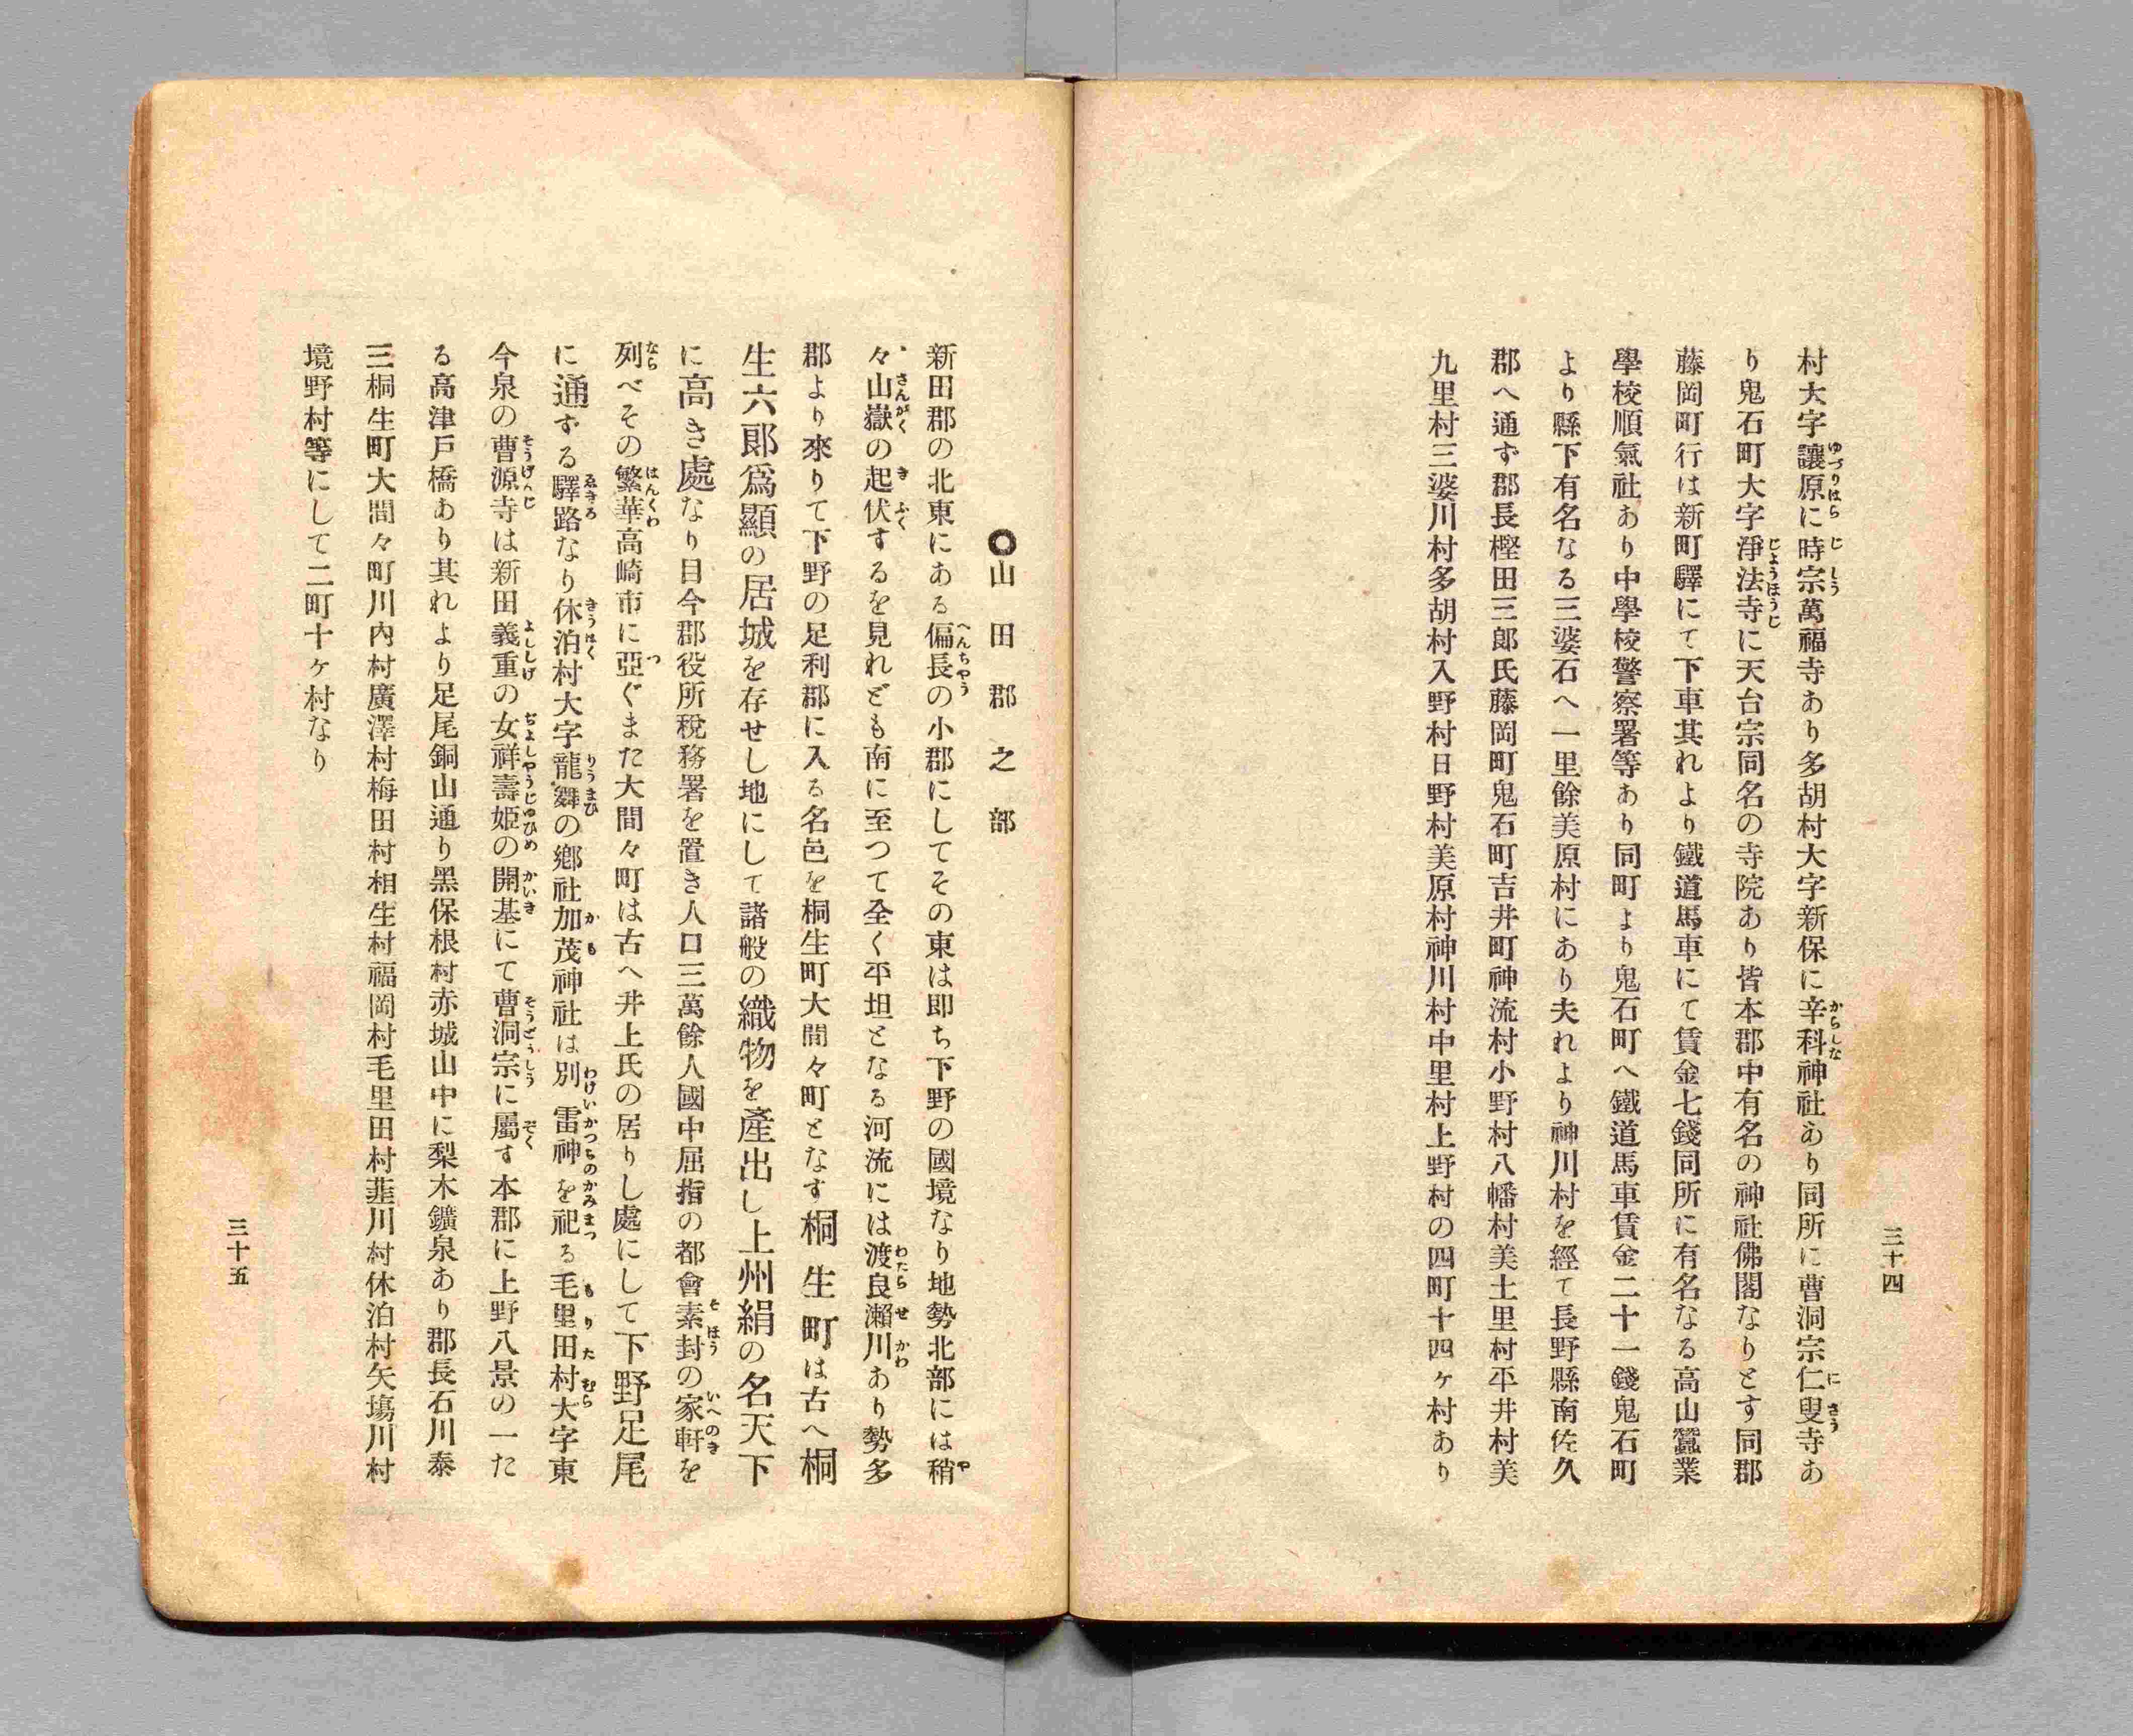 村大字讓原に時宗萬福寺あり多胡村大字新保に辛科神社あり同所に曹洞宗仁叟寺あ
り鬼石町大字淨法寺に天台宗同名の寺院あり皆本郡中有名の神社佛閣なりとす同郡
藤岡町行は新町驛にて下車其れより鐵道馬車にて賃金七錢同所に有名なる高山蠶業
學校順氣社あり中學校警察署等あり同町より鬼石町へ鐵道馬車賃金二十一錢鬼石町
より縣下有名なる三婆石へ一里餘美原村にあり夫れより神川村を經て長野縣南佐久
郡へ通ず郡長樫田三郎氏藤岡町鬼石町吉井町神流村小野村八幡村美土里村平井村美
九里村三婆川村多胡村入野村日野村美原村神川村中里村上野村の四町十四ヶ村あり
三十四
○山田郡之部
新田郡の北東にある偏長の小郡にしてその東は即ち下野の國境なり地勢北部には稍
々山嶽の起伏するを見れども南に至つて全く平坦となる河流には渡良瀨川あり勢多
郡より來りて下野の足利郡に入る名邑を桐生町大間々町となす桐生町は古へ桐
生六郎爲顯の居城を存せし地にして諸般の織物を產出し上州絹の名天下
に高き處なり目今郡役所稅務署を置き人口三萬餘人國中屈指の都會素封の家軒を
列べその繁華高崎市に亞ぐまた大間々町は古へ井上氏の居りし處にして下野足尾
に通ずる驛路なり休泊村大字龍舞の鄕社加茂神社は別雷神を祀る毛里田村大字東
今泉の曹源寺は新田義重の女祥壽姬の開基にて曹洞宗に屬す本郡に上野八景の一た
る高津戶橋あり其れより足尾銅山通り黑保根村赤城山中に梨木鑛泉あり郡長石川泰
三桐生町大間々町川內村廣澤村梅田村相生村福岡村毛里田村韮川村休泊村矢塲川村
境野村等にして二町十ヶ村なり
三十五